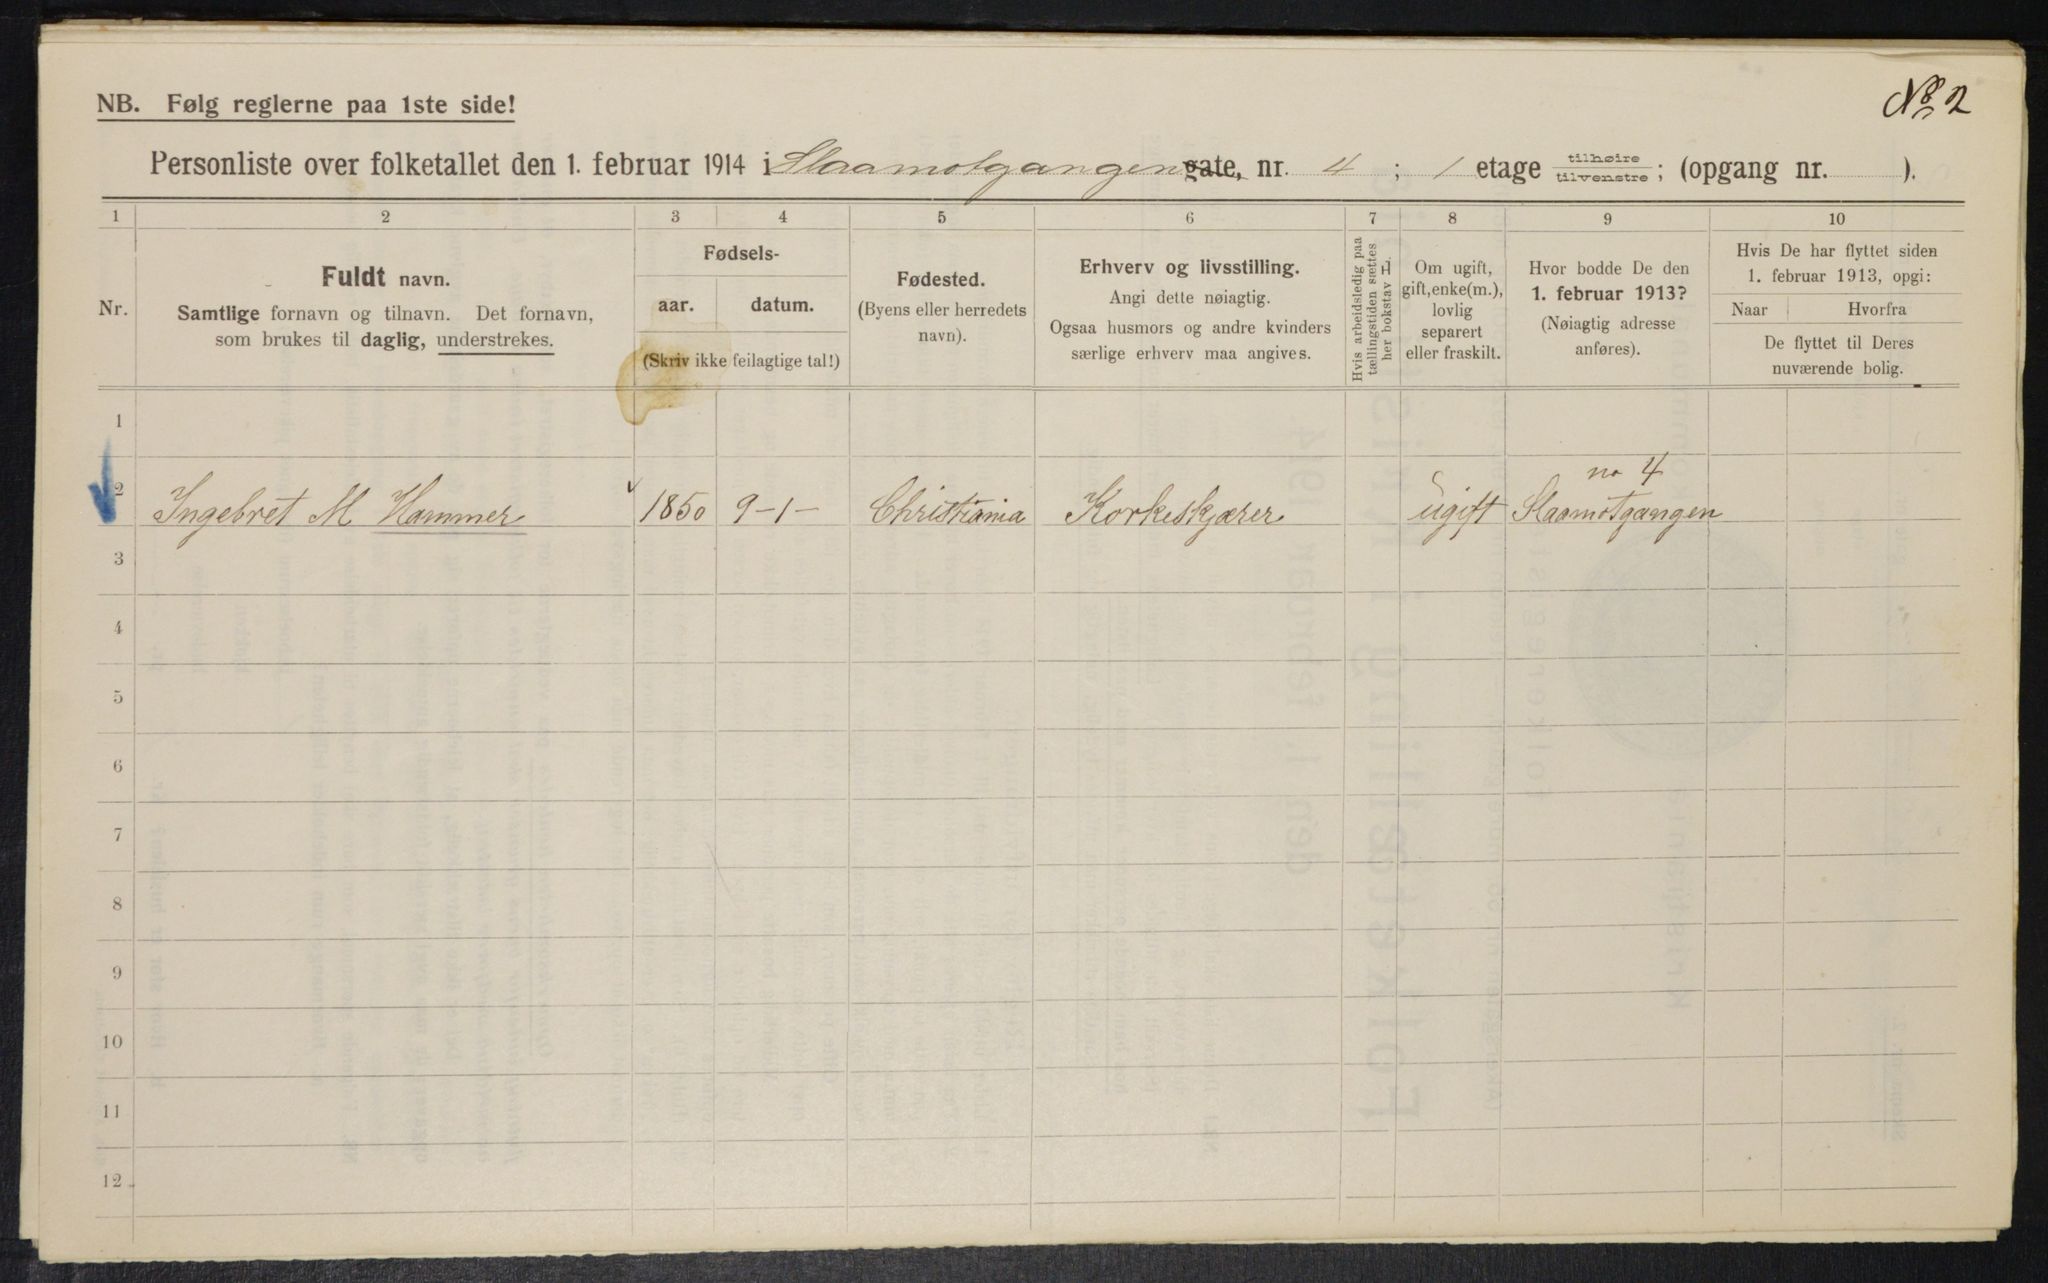 No 2
NB. Følg reglerne paa 1ste side!
Personliste over folketallet den 1. februar 1914 i Slaamotgangen gate, nr. 4 ; 1 etage tilhøire tilvenstre ; (opgang nr. ).
1 2 3 4 5 6 7 8 9 10
Nr.
Fuldt navn.
Samtlige fornavn og tilnavn. Det fornavn,
som brukes til daglig, understrekes.
Fødsels-
aar. datum.
(Skriv ikke feilagtige tal!)
Fødested.
(Byens eller herredets
navn).
Erhverv og livsstilling.
Angi dette nøiagtig.
Ogsaa husmors og andre kvinders
særlige erhverv maa angives.
Hvis arbeidsledig paa
tællingstiden sættes
her bokstav L.
Om ugift,
gift, enke(m.),
lovlig
separert
eller fraskilt.
Hvor bodde De den
1. februar 1913?
(Nøiagtig adresse
anføres).
Hvis De har flyttet siden
1. februar 1913, opgi:
Naar Hvorfra
De flyttet til Deres
nuværende bolig.
1
no 4
2 Ingebret M Hammer 1850 9-1- Christiania Korkeskjærer ugift Slaamotgangen
3
4
5
6
7
8
9
10
11
12